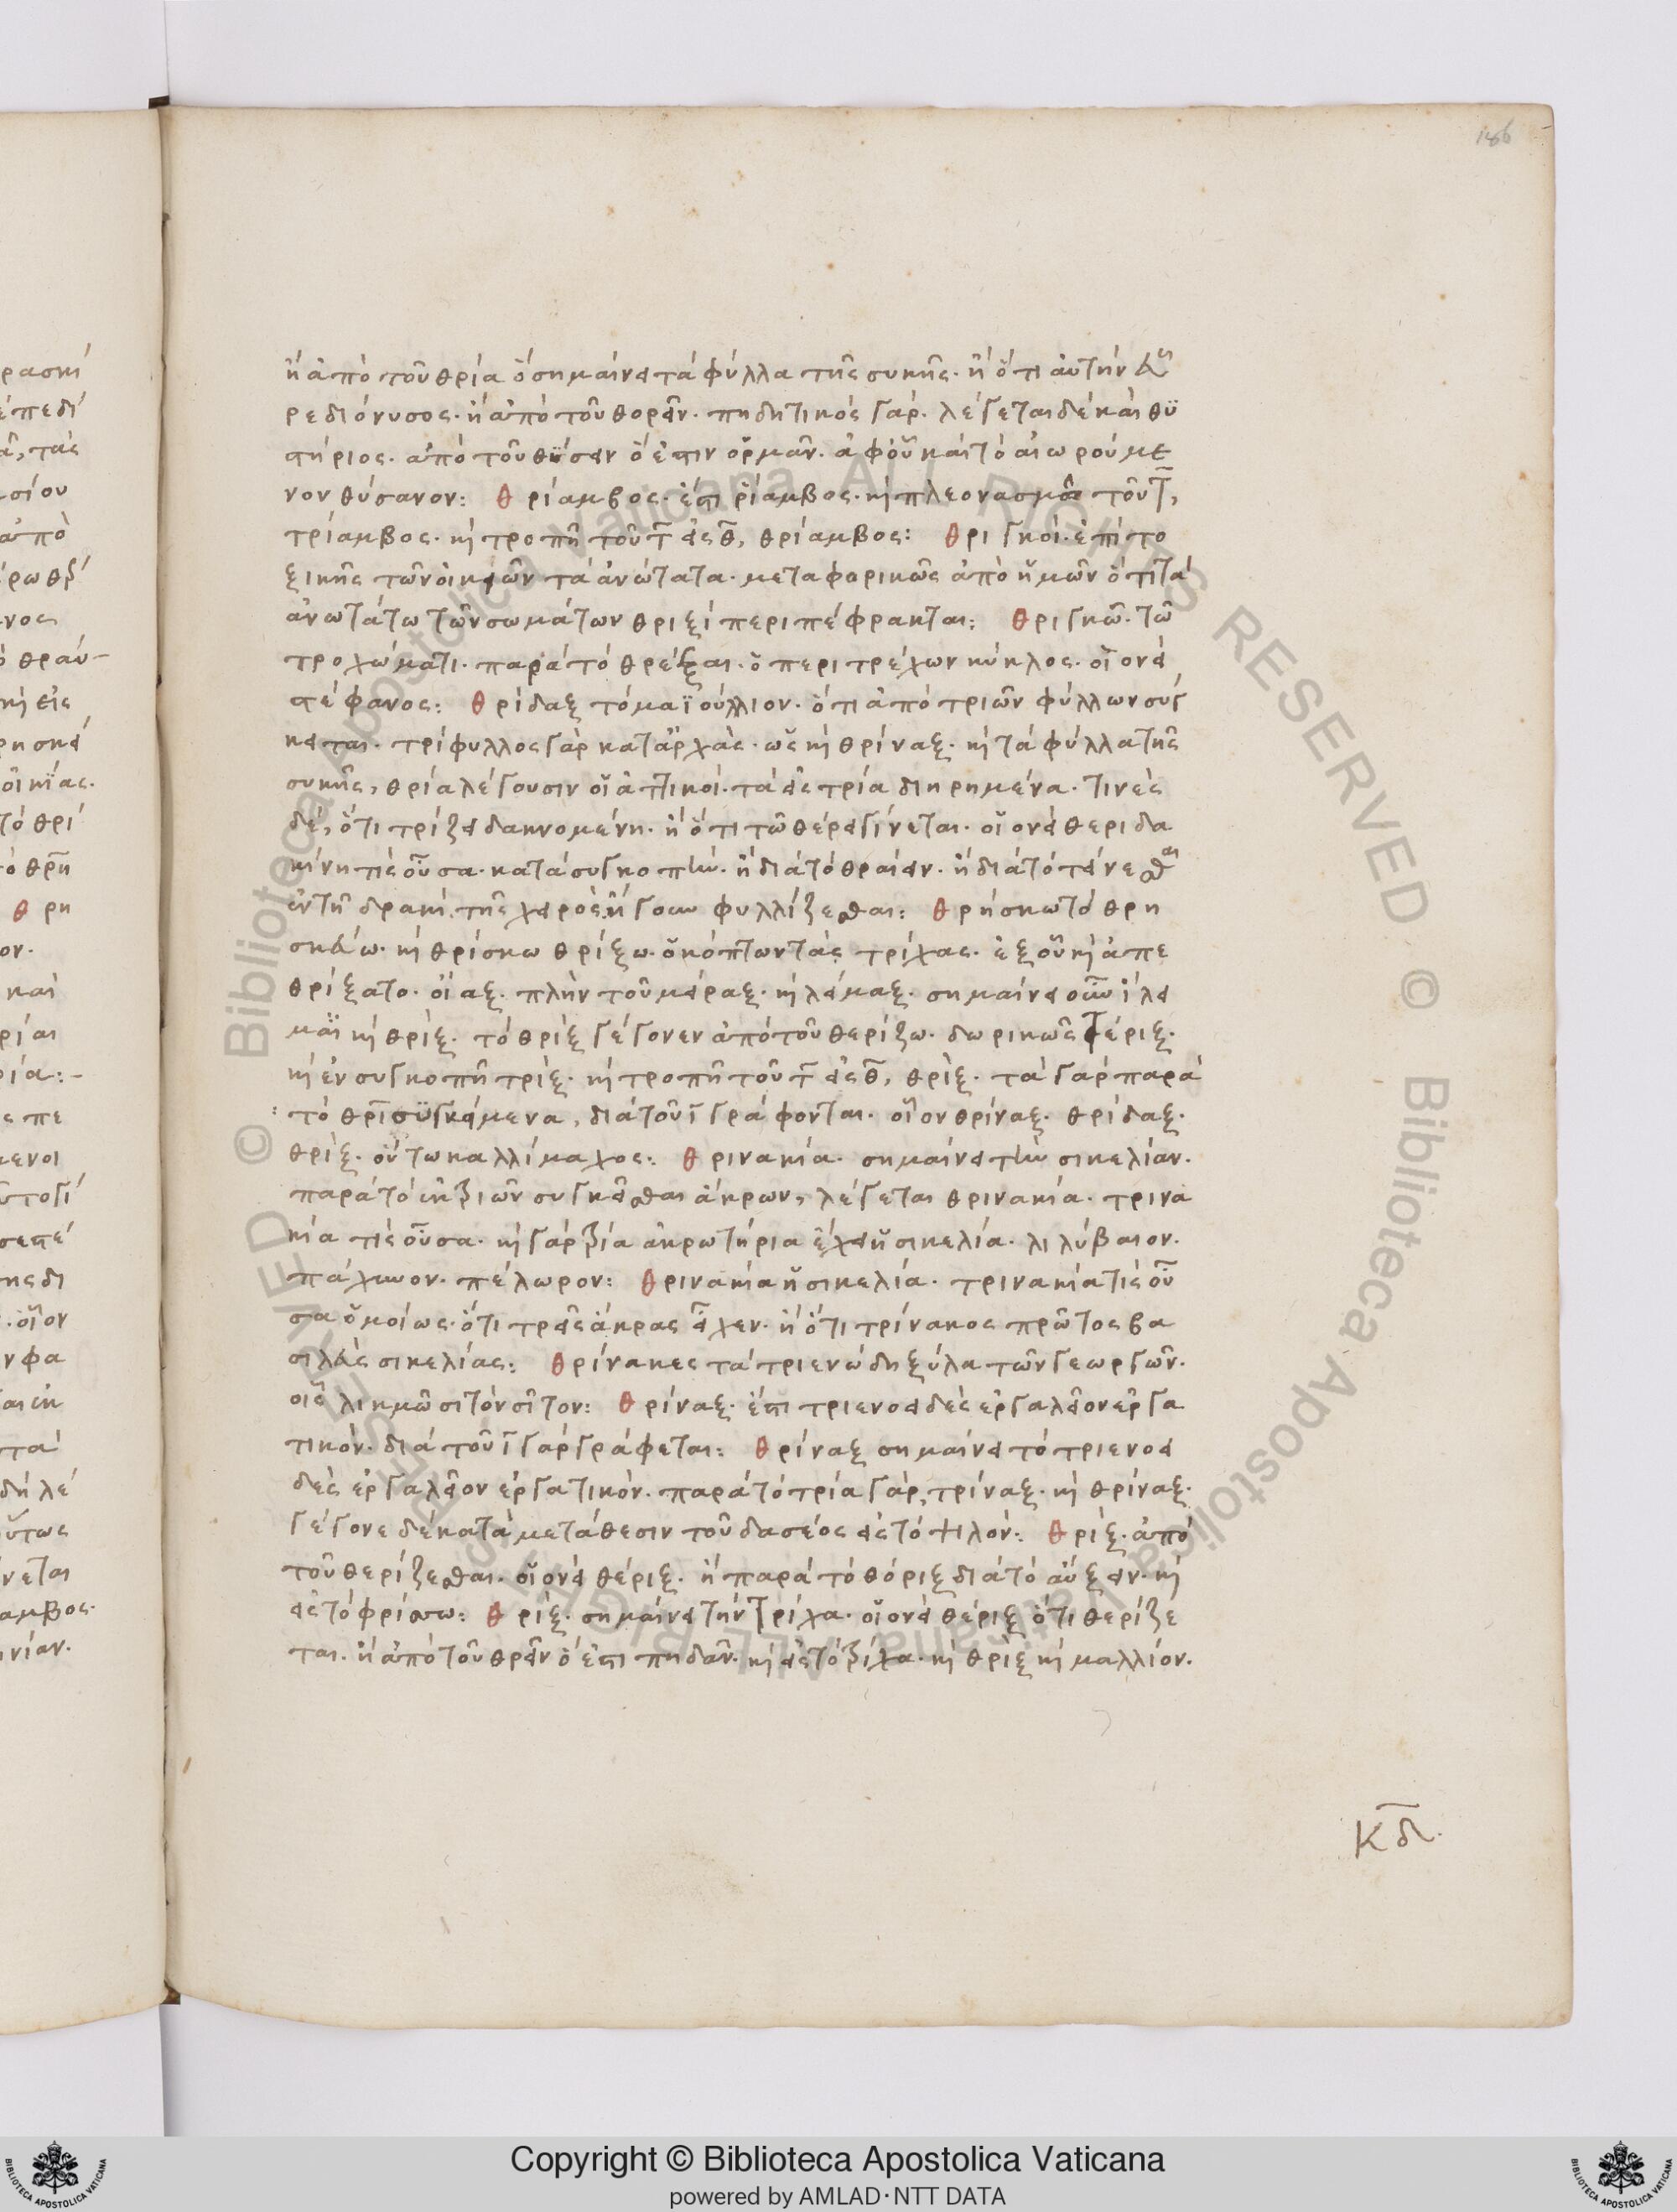 186
ἢ ἀπὸ τοῦ θρία ὃ σημαίνει τὰ φύλλα τῆς συκῆς. ἢ ὅτι αὐτὴν εὗ
ρε διόνυσος. ἢ ἀπὸ τοῦ θορεῖν. πηδητικὸς γάρ. λέγεται δὲ καὶ θϋ
στήριος. ἀπὸ τοῦ θύσειν ὅ ἐστιν ὁρμᾶν. ἀφ οὗ καὶ τὸ αἰωρούμε
νον θύσανον: θρίαμβος. ἔστι ῥίαμβος. καὶ πλεονασμῶ τοῦ τ,
τρίαμβος. καὶ τροπῇ τοῦ τ εἰς θ, θρίαμβος: θριγκοί. ἐπὶ το
ξικῆς τῶν οἰκιῶν τὰ ἀνώτατα. μεταφορικῶς ἀπὸ ἡμῶν ὅτι τὰ
ἀνωτάτω τῶν σωμάτων θριξὶ περιπέφρακται: θριγκῶ. τῶ
τροχώματι. παρὰ τὸ θρέξαι. ὁ περιτρέχων κύκλος. οἱονεὶ
στέφανος: θρίδαξ τὸ μαϊούλλιον. ὅτι ἀπὸ τριῶν φύλλων σύγ
κειται. τρίφυλλος γὰρ καταρχάς. ὡς καὶ θρίναξ. καὶ τὰ φύλλα τῆς
συκῆς, θρία λέγουσιν οἱ ἀττικοί. τὰ εἰς τρία διηρημένα. τινὲς
δέ, ὅτι τρίζει δακνομένη. ἢ ὅτι τῶ θέρει γίνεται. οἱονεὶ θεριδα
κίνη τὶς οὖσα. κατὰ συγκοπήν. ἢ διὰ τὸ θραίειν. ἢ διὰ τὸ τείνεσθαι
ἐν τῇ δρακὶ τῆς χειρὸς ἤγουν φυλλίζεσθαι: θρήσκω τὸ θρη
σκεύω. καὶ θρίσκω θρίξω. ὁ κόπτων τὰς τρίχας. ἐξ οὗ καὶ ἀπε
θρίξατο. οἴαξ. πλὴν τοῦ μείραξ. καὶ λείμαξ. σημαίνει οὖν ἵλει
μαῖ καὶ θρίξ. τὸ θρίξ γέγονεν ἀπὸ τοῦ θερίζω. δωρικῶς τέριξ.
καὶ ἐν συγκοπῇ τρίξ. καὶ τροπῇ τοῦ τ εἰς θ, θρίξ. τὰ γὰρ παρὰ
τὸ θρὶ συγκείμενα, διὰ τοῦ ι γράφονται. οἷον θρίναξ. θρίδαξ.
θρίξ. οὕτω καλλίμαχος: θρινακία. σημαίνει τὴν σικελίαν.
παρὰ τὸ ἐκ τριῶν συγκεῖσθαι ἄκρων, λέγεται θρινακία. τρινα
κία τὶς οὖσα. καὶ γὰρ τρία ἀκρωτήρια ἔχει ἡ σικελία. λιλύβαιον.
πάχυνον. πέλωρον: θρινακία ἡ σικελία. τρινακία τὶς οὖ
σα ὁμοίως. ὅτι τρεῖς ἄκρας εἶχεν. ἢ ὅτι τρίνακος πρῶτος βα
σιλεὺς σικελίας: θρίνακες τὰ τριενώδη ξύλα τῶν γεωργῶν.
οἷς λικμῶσι τὸν σῖτον: θρίναξ. ἔστι τριενοειδὲς ἐργαλεῖον ἐργα
τικόν. διὰ τοῦ ι γὰρ γράφεται: θρίναξ σημαίνει τὸ τριενοει
δὲς ἐργαλεῖον ἐργατικόν. παρὰ τὸ τρία γὰρ, τρίναξ. καὶ θρίναξ.
γέγονε δὲ κατὰ μετάθεσιν τοῦ δασέος εἰς τὸ ψιλόν: θρίξ. ἀπὸ
τοῦ θερίζεσθαι. οἱονεὶ θέριξ. ἢ παρὰ τὸ θόριξ διὰ τὸ αὔξειν. καὶ
εἰς τὸ φρίσσω: θρίξ. σημαίνει τὴν τρίχα. οἱονεὶ θέριξ ὅτι θερίζε
ται. ἢ ἀπὸ τοῦ θρεῖν ὅ ἐστι πηδᾶν. καὶ εἰς τὸ τρίχα. καὶ θρίξ καὶ μαλλίον.
κδ.
Copyright © Biblioteca Apostolica Vaticana
powered by AMLAD·NTT DATA